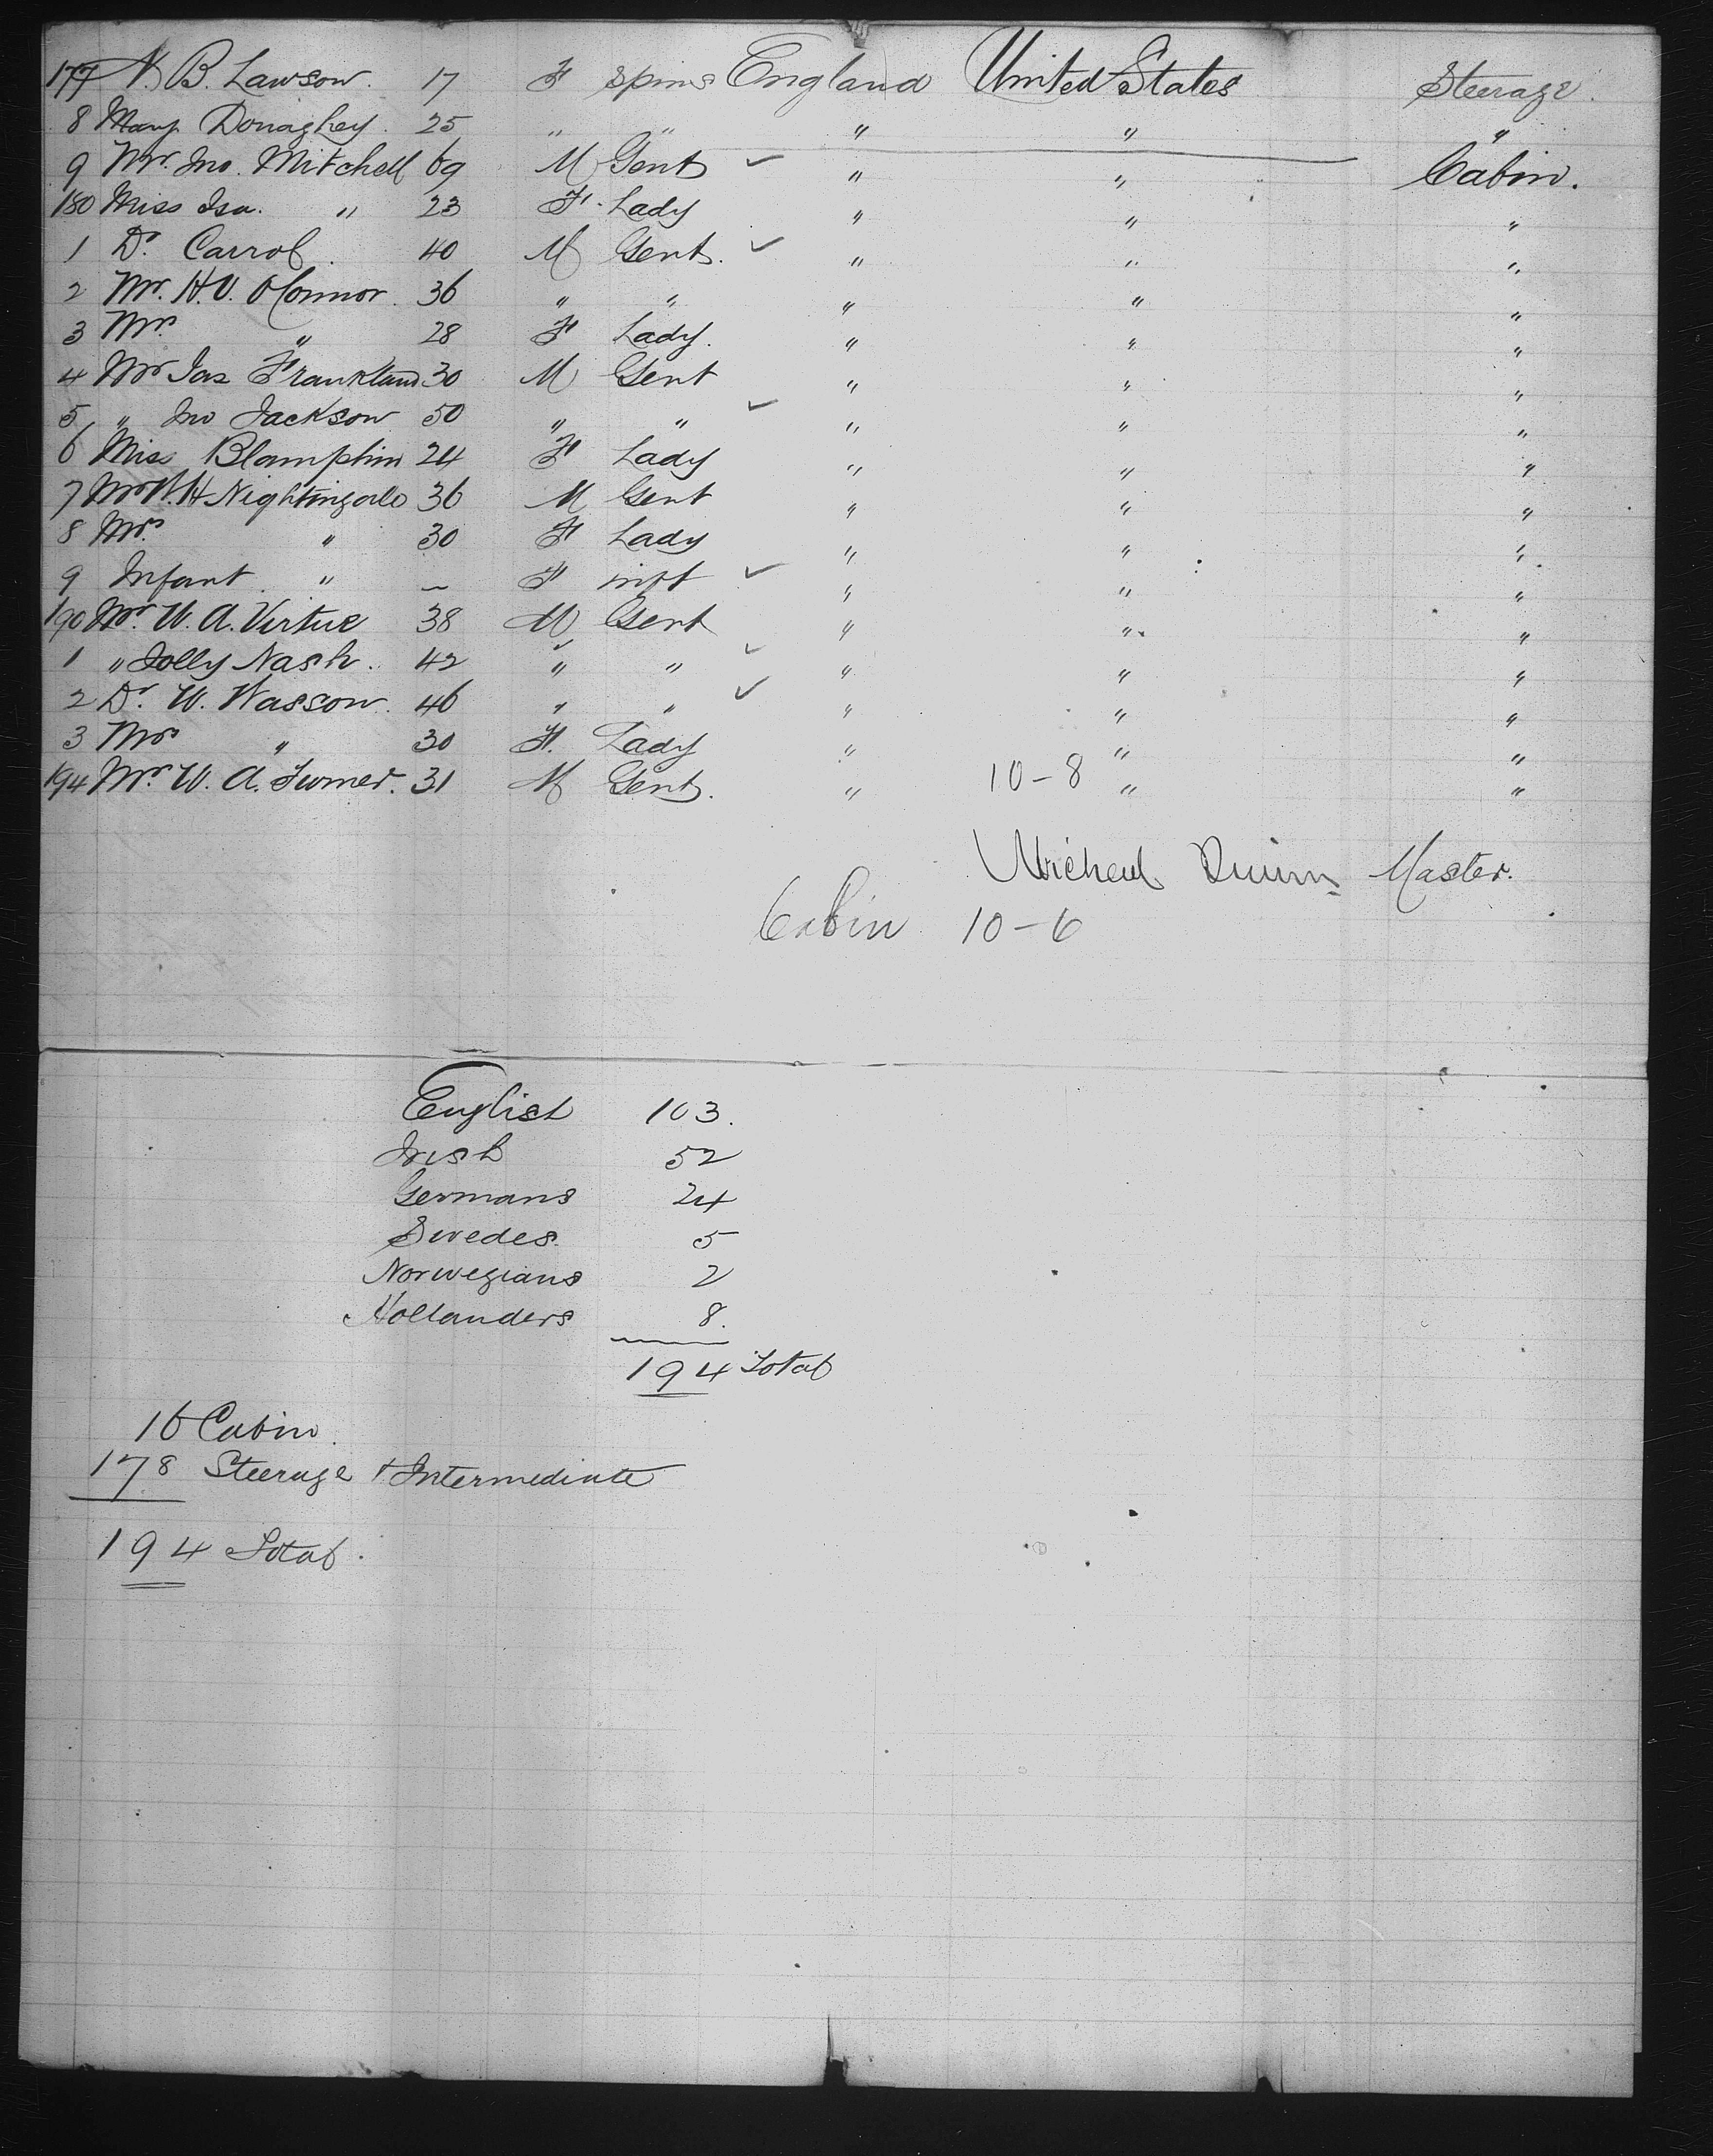 177 N. B. Lawson. 17 F spins England United States Steerage.
8 Mary Donaghey. 25 " " " " "
9 Mr. Jno. Mitchell 69 M Gent ✓ " " Cabin.
180 Miss Isa. " 23 F. Lady " " "
1 Dr. Carrol. 40 M Gent. ✓ " " "
2 Mr. H.V. O'Connor. 36 " " " " "
3 Mrs " 28 F Lady. " " "
4 Mr Jas Frankland 30 M Gent " " "
5 " Jno Jackson 50 " " ✓ " " "
6 Miss Blamphin 24 F Lady " " "
7 Mr W.H Nightingale 36 M Gent " " "
8 Mrs. " 30 F Lady " " "
9 Infant " – F inft ✓ " " "
190 Mr. W. A. Virtue 38 M Gent " " "
1 " Jolly Nash. 42 " " ✓ " " "
2 Dr. W. Wasson. 46 " " ✓ " " "
3 Mrs " 30 F. Lady " " "
194 Mr. W. A. Turner. 31 M Gent. " 10-8 " "
Micheal Quinn Master.
Cabin 10-6
English 103.
Irish 52
Germans 24
Swedes. 5
Norwegians 2
Hollanders 8.
194 Total
16 Cabin.
178 Steerage + Intermediate
194 Total.